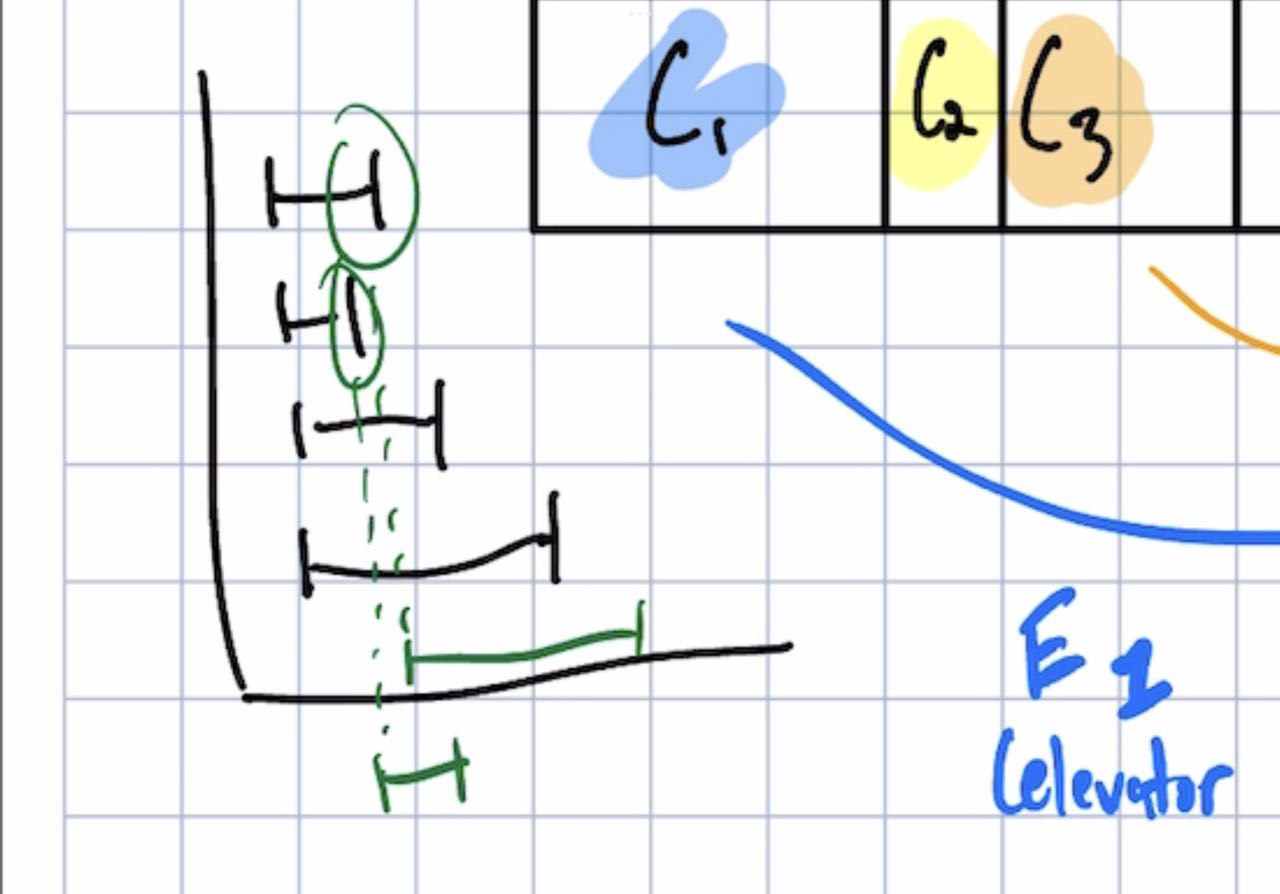 C₁ C₂ C₃
E1
(elevator